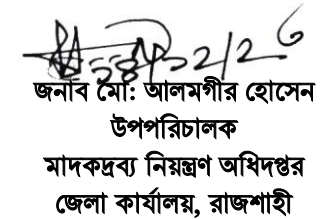 জনাব মো: আলমগীর হোসেন
উপপরিচালক
মাদকদ্রব্য নিয়ন্ত্রণ অধিদপ্তর
জেলা কার্যালয়, রাজশাহী